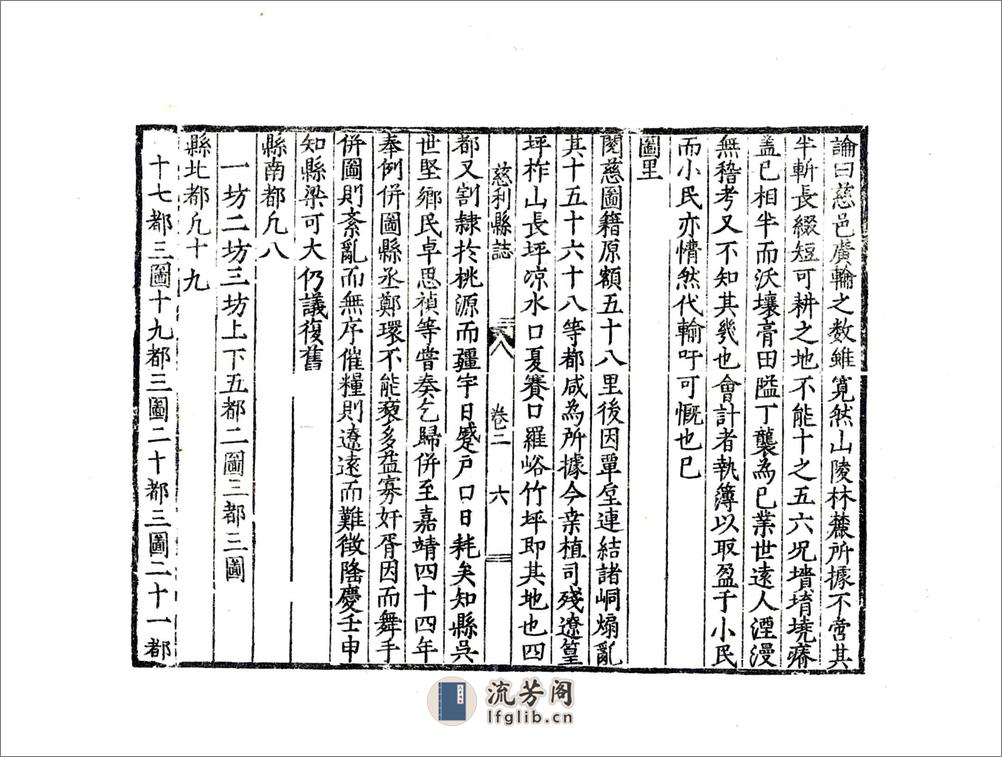 論曰慈邑廣輪之数雖寛然山陵林麓所據不啻其
半斬長綴短可耕之地不能十之五六况墻堉墝瘠
盖已相半而沃壤膏田隘丁襲為已業世遠人湮漫
無稽考又不知其幾也會計者執簿以取盈于小民
而小民亦懵然代輸吁可慨也已
圖里
閱慈圖籍原額五十八里後因覃垕連結諸峒煽亂
其十五十六十八等都咸為所據今桒植司殘遼篁
坪柞山長坪凉水口夏賽口羅峪竹坪即其地也四
慈利縣誌 卷二 六
都又割隸於桃源而疆宇日蹙户口日耗矣知縣吳
世堅鄉民卓思禎等嘗奏乞歸併至嘉靖四十四年
奉例併圖縣丞鄭環不能裒多益寡奸胥因而舞手
併圖則紊亂而無序催糧則遼遠而難徵隆慶壬申
知縣梁可大仍議復舊
縣南都凢八
一坊二坊三坊上下五都二圖三都三圖
縣北都凢十九
十七都三圖十九都三圖二十都三圖二十一都
流芳阁
lfglib.cn